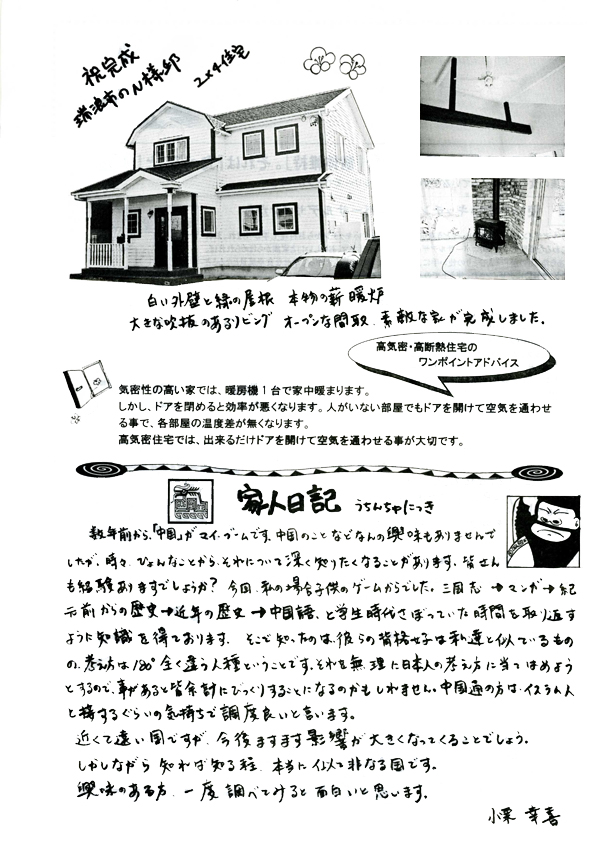 祝完成
瑞浪市のN様邸
2x4住宅
白い外壁と緑の屋根 本物の薪暖炉
大きな吹抜のあるリビング オープンな間取、素敵な家が完成しました。
高気密・高断熱住宅の
ワンポイントアドバイス
気密性の高い家では、暖房機1台で家中暖まります。
しかし、ドアを閉めると効率が悪くなります。人がいない部屋でもドアを開けて空気を通わせ
る事で、各部屋の温度差が無くなります。
高気密住宅では、出来るだけドアを開けて空気を通わせる事が大切です。
家人日記 うちんちゃにっき
数年前から、「中国」がマイ・ブームです。中国のことなどなんの興味もありませんで
したが、時々、ひょんなことから、それについて深く知りたくなることがあります。皆せん
も経験ありますでしょうか? 今回、私の場合子供のゲームからでした。三国志→マンガ→紀
元前からの歴史→近年の歴史→中国語、と学生時代さぼっていた時間を取り返す
ように知識を得ております。そこで知ったのは、彼らの皆格好は私達と似ているもの
の、考え方は180°全く違う人種ということです。それを無理に日本人の考え方に当てはめよう
とするので、事があると皆余計にびっくりすることになるのかもしれません。中国通の方は、イスラム人
と接するぐらいの気持ちで調度良いと言います。
近くて遠い国ですが、今後ますます影響が大きくなってくることでしょう。
しかしながら 知れば知る程、本当に似て非なる国です。
興味のある方、一度調べてみると面白いと思います。
小栗 幸喜